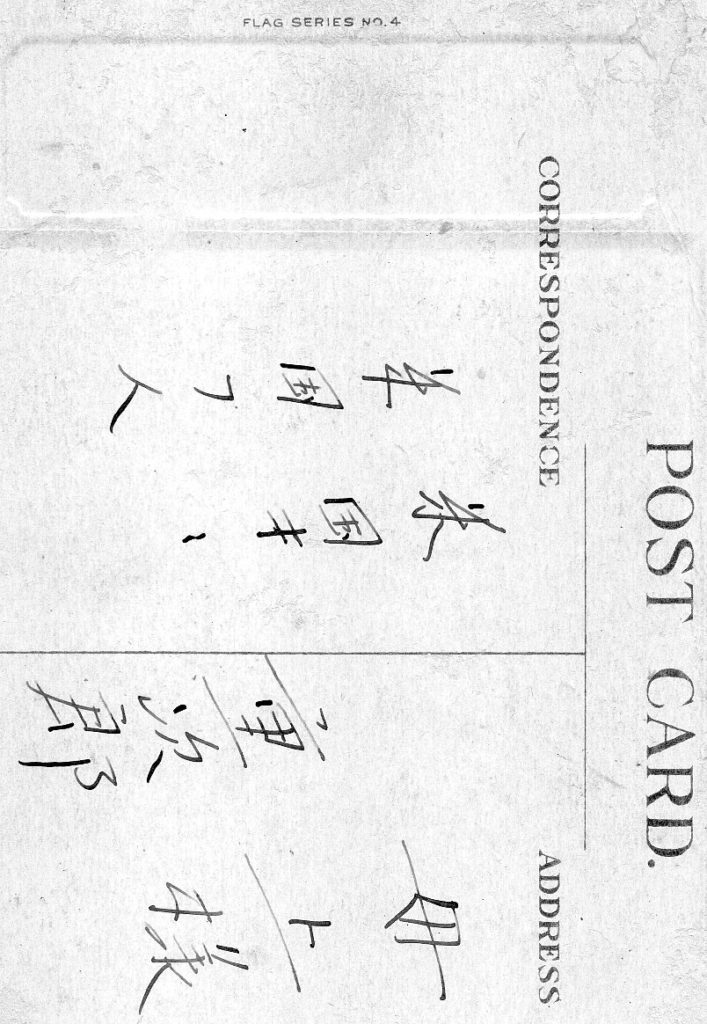 FLAG SERIES NO. 4
POST CARD.
CORRESPONDENCE
ADDRESS
母上様
次郎
米国
国 人